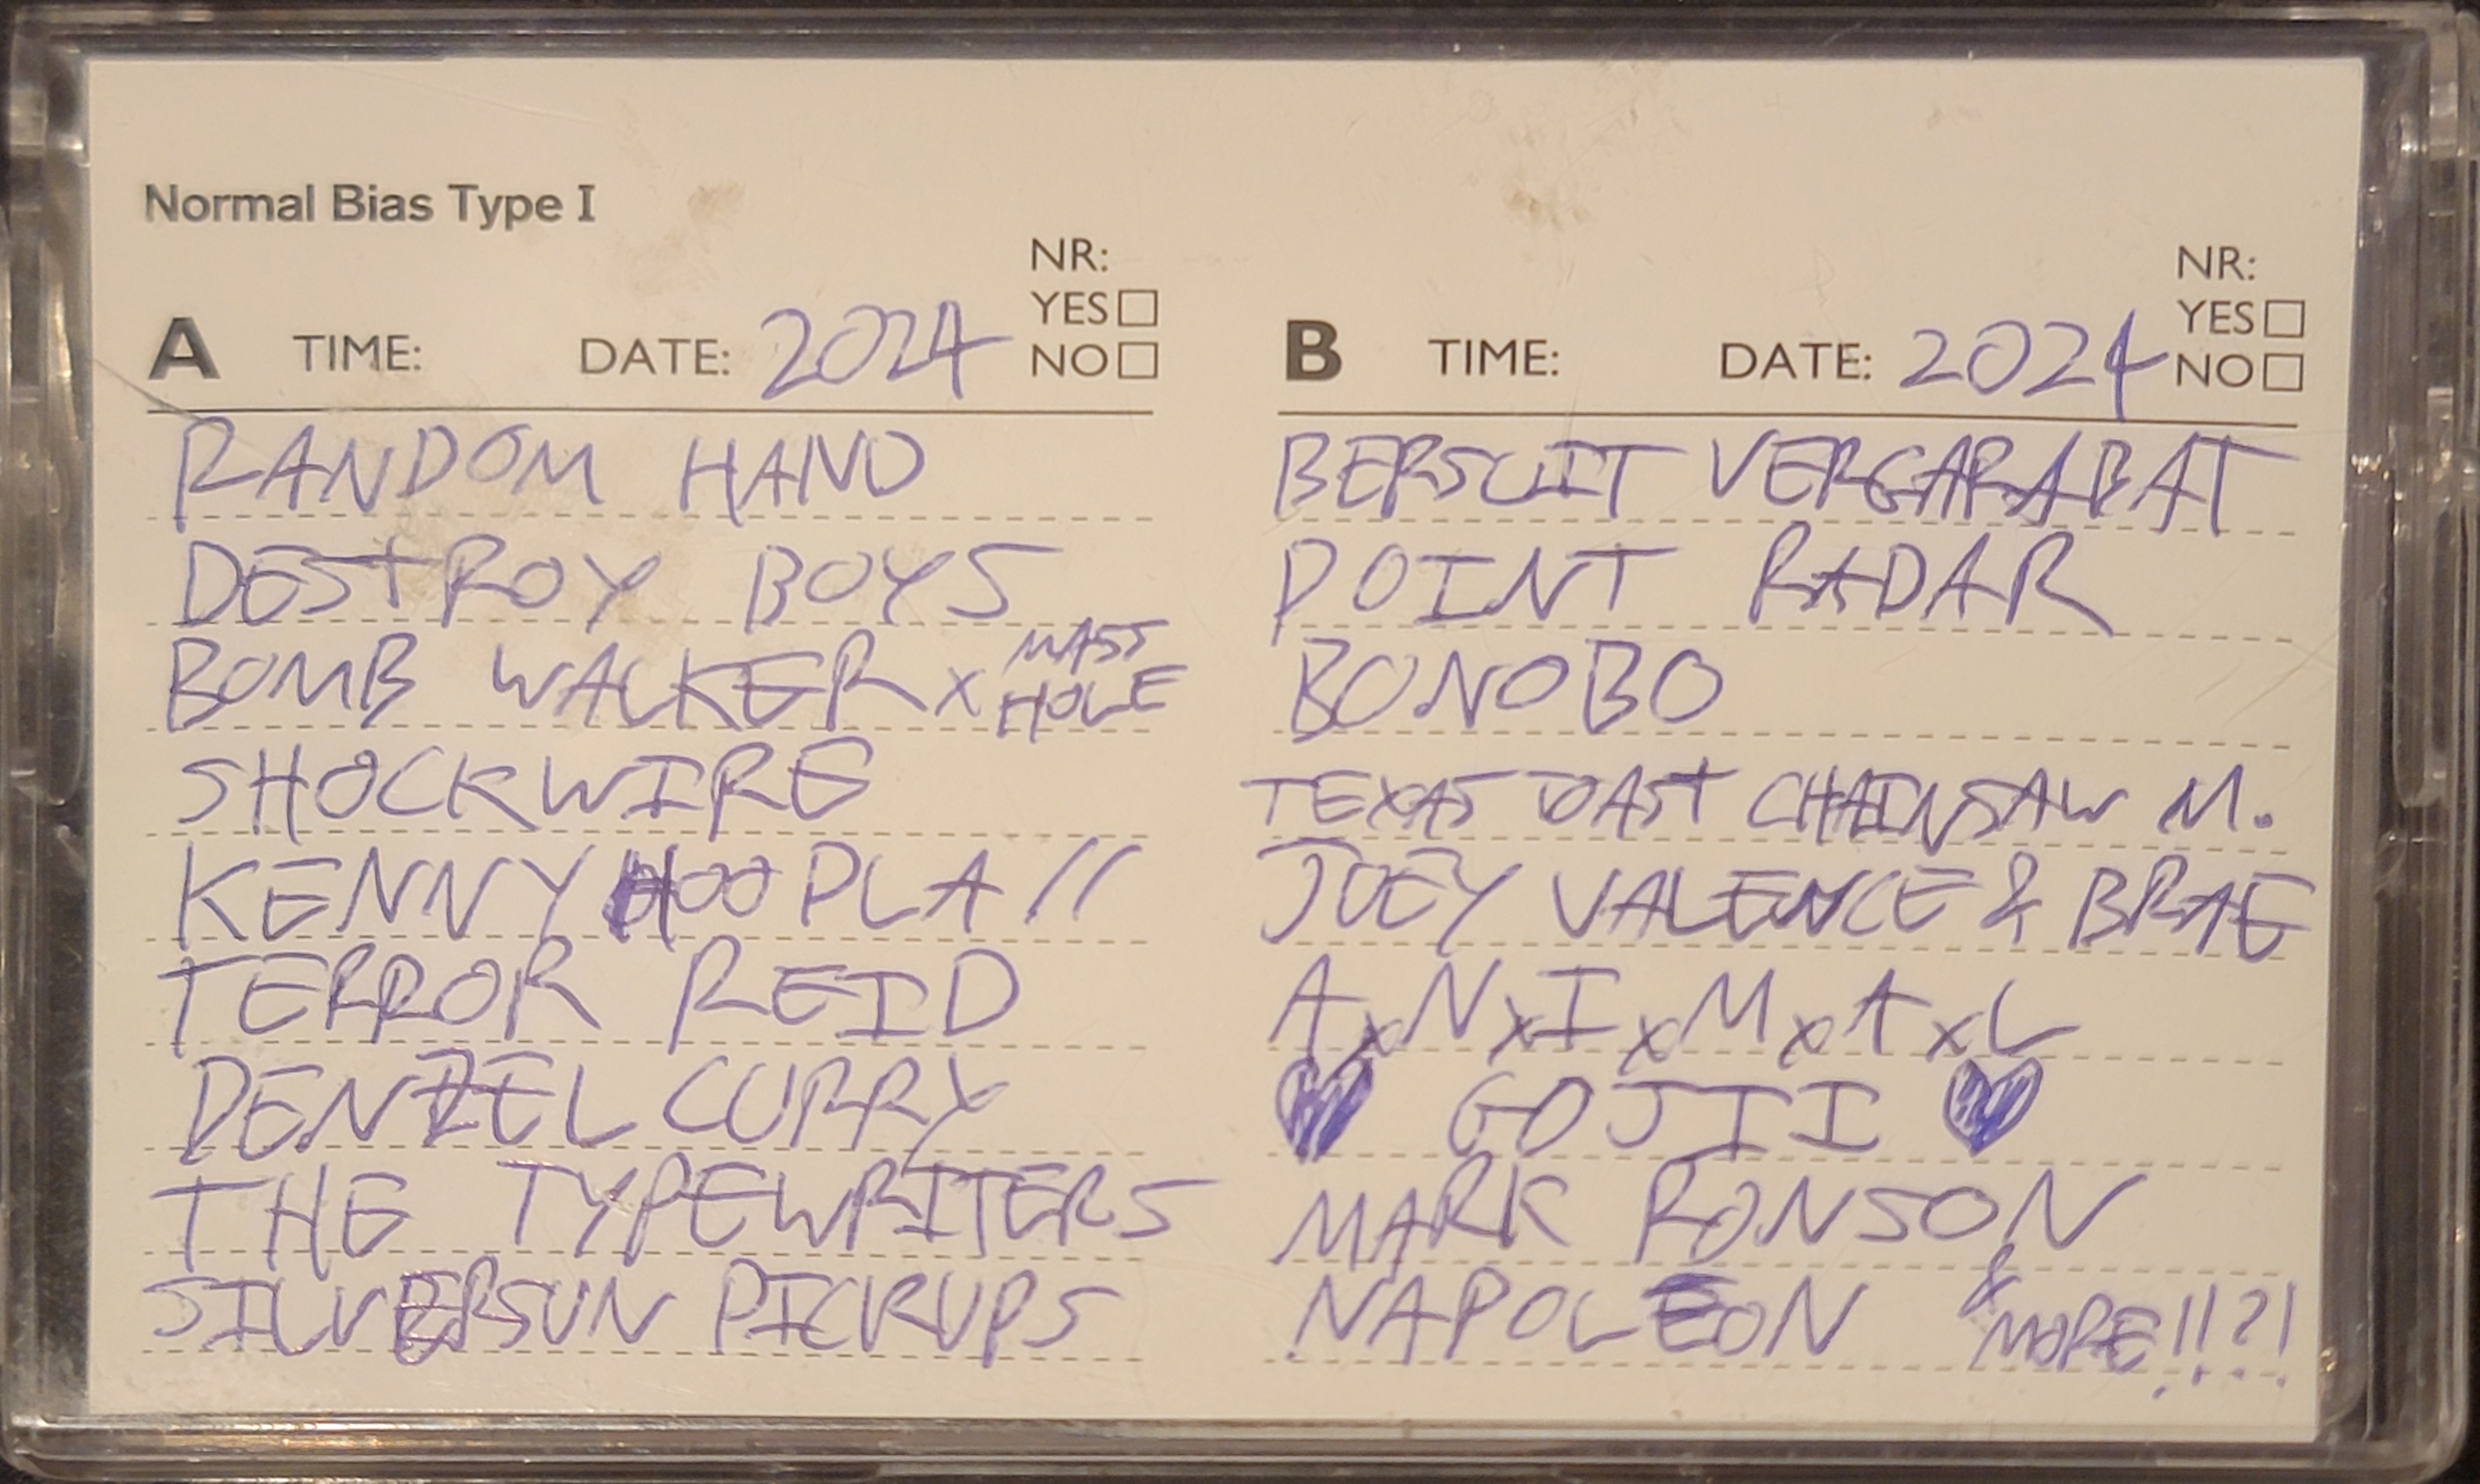 Normal Bias Type I
A TIME: DATE: 2024 NR: YES NO
RANDOM HAND
DESTROY BOYS
BOMB WALKER x MASS HOLE
SHOCKWIRE
KENNY HOOPLA //
TERROR REID
DENZEL CURRY
THE TYPEWRITERS
SILVERSUN PICKUPS
B TIME: DATE: 2024 NR: YES NO
BERSUIT VERGARABAT
POINT RADAR
BONOBO
TEXAS TOAST CHAINSAW M.
JOEY VALENCE & BRAE
AxNxIxMxAxL
♥ GOJII ♥
MARK RONSON
NAPOLEON & MORE!!?!